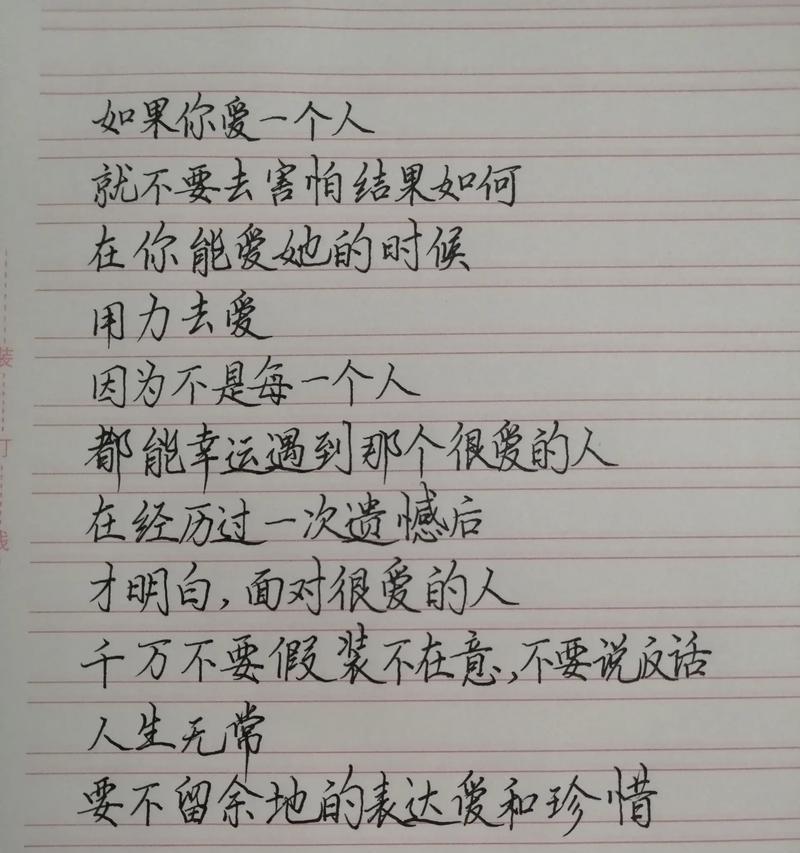 如果你爱一个人
就不要去害怕结果如何
在你能爱她的时候
用力去爱
因为不是每一个人
都能幸运遇到那个很爱的人
在经历过一次遗憾后
才明白,面对很爱的人
千万不要假装不在意,不要说反话
人生无常
要不留余地的表达爱和珍惜
装
订
线